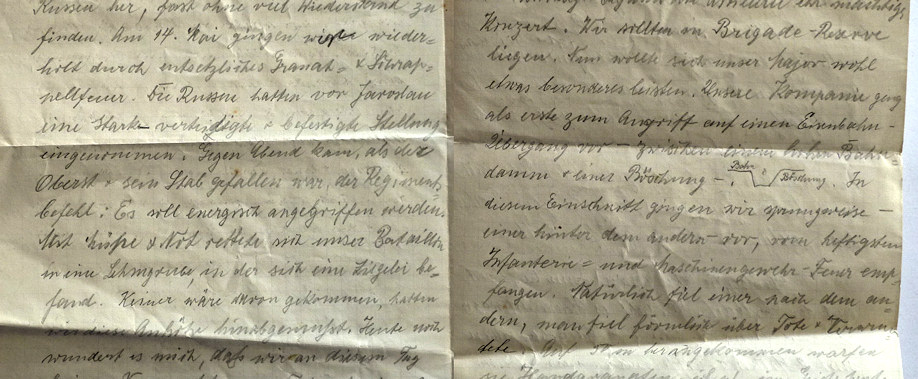 Russen her, fast ohne viel Widerstand zu
finden. Am 14. Mai gingen wir wieder=
holt durch entsetzliches Granat= & Schrap=
nellfeuer. Die Russen hatten vor Jaroslau
eine Stark verteidigte & befestigte Stellung
eingenommen. Gegen Abend kam, als der
Oberst & sein Stab gefallen war, der Regiments
befehl: Es soll energisch angegriffen werden.
Mit & Not rettete sich unser Bataillon
in eine Lehmgrube, in der sich eine Ziegelei be=
fand. Keiner wäre davon gekommen, hätten
wir diese Anhöhe hinabgemusst. Heute noch
wundert es mich, dass wir an diesem Tag
Konzert. Wir sollten in Brigade-Reserve
liegen. Nun wollte sich unser Major wohl
etwas besonderes leisten. Unsere Kompanie ging
als erste zum Angriff auf einen Eisenbahn-
Übergang vor - zwischen einem hohen Bahn
damm & einer Böschung - Bahn Böschung. In
diesem Einschnitt gingen wir sprungweise -
einer hinter dem andern - vor, vom heftigsten
Infanterie= und Maschinengewehr-Feuer emp
fangen. Natürlich fiel einer nach dem an
dern, man fiel förmlich über Tote &
Auf herangekommen warfen
Handgranaten